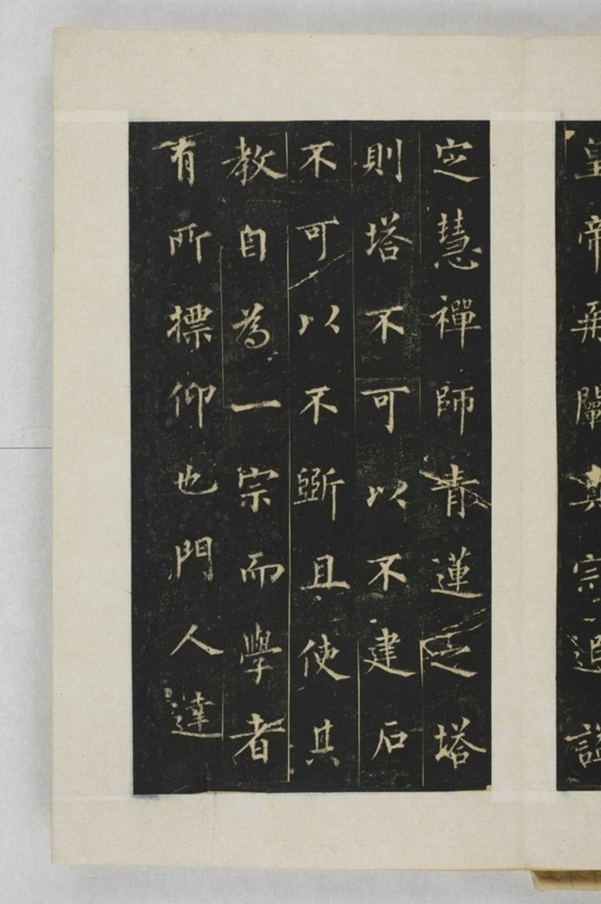 皇帝再闡真宗追諡
定慧禪師青蓮之塔
則塔不可以不建石
不可以不斲且使其
教自為一宗而學者
有所摽仰也門人達